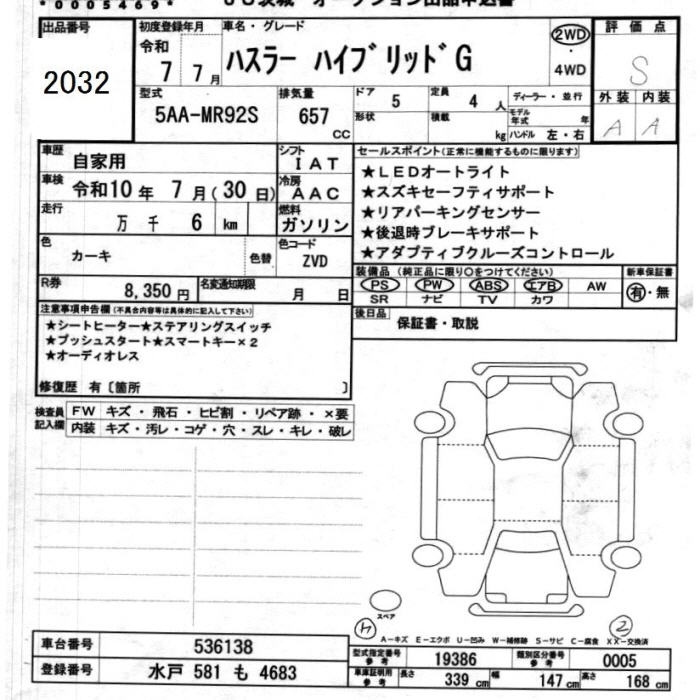 *0005469*
出品番号 2032
初度登録年月 令和 7 7 月
車名・グレード ハスラー ハイブリッド G
2WD・4WD
評価点 S
外装 A 内装 A
型式 5AA-MR92S
排気量 657 CC
ドア 5 定員 4 人
ディーラー・並行
形状 積載 kg
モデル年式 年
ハンドル 左・右
車歴 自家用
シフト IAT
車検 令和10 年 7 月(30 日)
冷房 AAC
走行 万 千 6 km
燃料 ガソリン
色 カーキ 色替
色コード ZVD
R券 8,350 円
名変通知期限 月 日
セールスポイント(正常に機能するものに限ります)
★LEDオートライト
★スズキセーフティサポート
★リアパーキングセンサー
★後退時ブレーキサポート
★アダプティブクルーズコントロール
装備品 (純正品に限り○をつけてください) 新車保証書
PS PW ABS エアB AW 有・無
SR ナビ TV カワ
後日品 保証書・取説
注意事項申告欄(不具合内容等は具体的に記入して下さい)
★シートヒーター★ステアリングスイッチ
★プッシュスタート★スマートキー×2
★オーディオレス
修復歴 有〔箇所 〕
検査員記入欄
FW キズ・飛石・ヒビ割・リペア跡・×要
内装 キズ・汚レ・コゲ・穴・スレ・キレ・破レ
スペア
A-キズ E-エクボ U-凹み W-補修跡 S-サビ C-腐食 XX-交換済
車台番号 536138
登録番号 水戸 581 も 4683
型式指定番号 参考 19386 類別区分番号 参考 0005
車庫証明用 参考 長さ 339 cm 幅 147 cm 高さ 168 cm